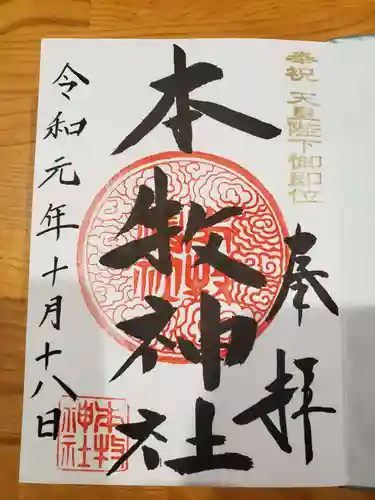 奉祝 天皇陛下御即位
奉拝
本牧神社
令和元年十月十八日
本牧神社